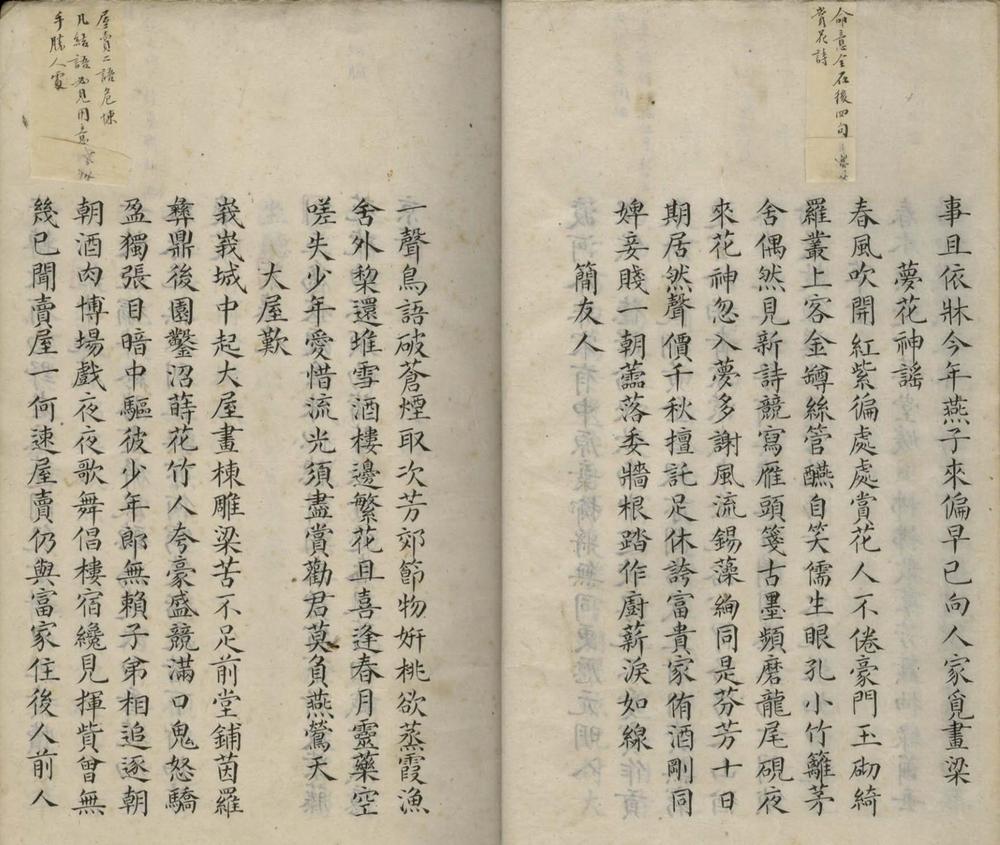 命意全在後四句
賞花詩
事且依牀今年燕子來偏早已向人家覓畫梁
夢花神謠
春風吹開紅紫徧處處賞花人不倦豪門玉砌綺
羅叢上客金罇絲管醼自笑儒生眼孔小竹籬茅
舍偶然見新詩競寫雁頭箋古墨頻磨龍尾硯夜
來花神忽入夢多謝風流錫藻絢同是芬芳十日
期居然聲價千秋擅託足休誇富貴家侑酒剛同
婢妾賤一朝蘦落委牆根踏作廚薪淚如線
簡友人
屋賣二語危悚
凡結語必見用意
手勝人處
一聲鳥語破蒼煙取次芳郊節物姸桃欲蒸霞漁
舍外棃還堆雪酒樓邊繁花且喜逢春月靈藥空
嗟失少年愛惜流光須盡賞勸君莫負燕鶯天
大屋歎
峩峩城中起大屋畫棟雕梁苦不足前堂鋪茵羅
彝鼎後園鑿沼蒔花竹人夸豪盛競滿口鬼怒驕
盈獨張目暗中驅彼少年郎無賴子弟相追逐朝
朝酒肉博場戲夜夜歌舞倡樓宿纔見揮貲曾無
幾已聞賣屋一何速屋賣仍與富家住後人前人